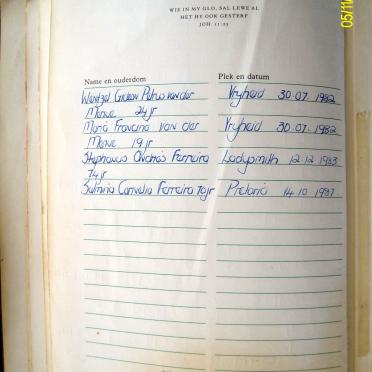 WIE IN MY GLO, SAL LEWE AL
HET HY OOK GESTERF
JOH. 11:25
Name en ouderdom Plek en datum
Petrus van der Vryheid 30.07.1982
Merwe 24 jr
Maria Francina van der Vryheid 30.07.1982
Merwe 19 jr
Stephanus Andries Ferreira Ladysmith 12.12.1983
74 jr
Cornelia Ferreira 70 jr Pretoria 14.10.1987
05/11/